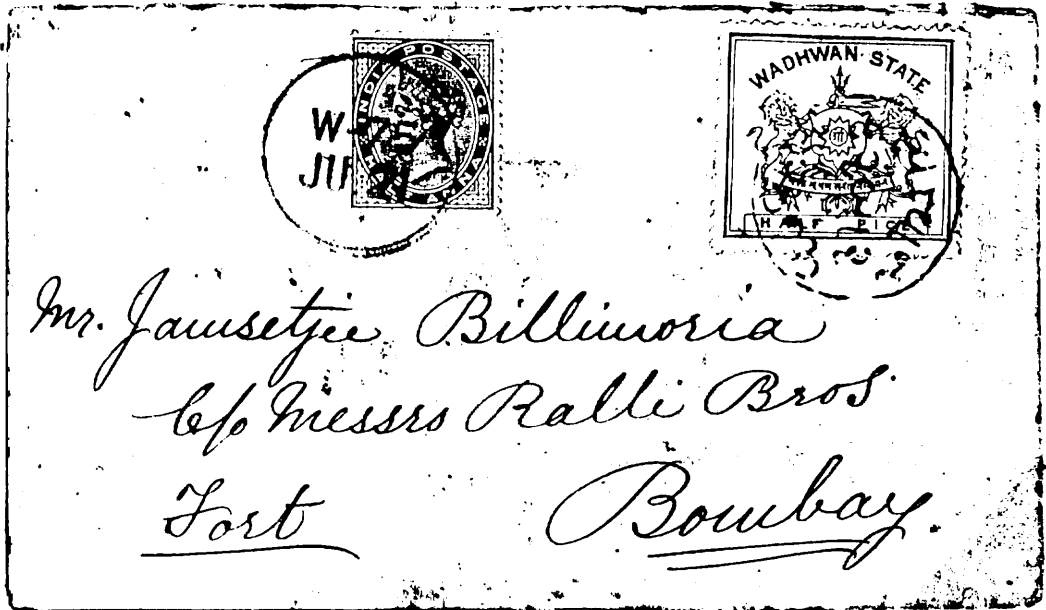 INDIA POSTAGE
WADHWAN · STATE
HALF PICE
Mr. Jamsetjee Billimoria
C/o Messrs Ralli Bros.
Fort Bombay.